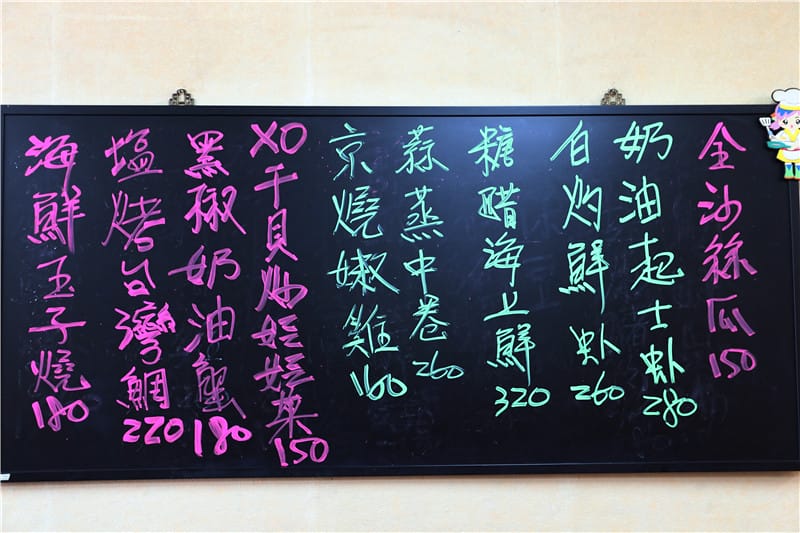 金沙絲瓜150
奶油起士虾280
白灼鮮虾260
糖醋海上鮮320
蒜蒸中卷260
京燒嫩雞160
XO干貝炒娃娃菜150
黑椒奶油蟹180
塩烤台灣鯛220
海鮮玉子燒180